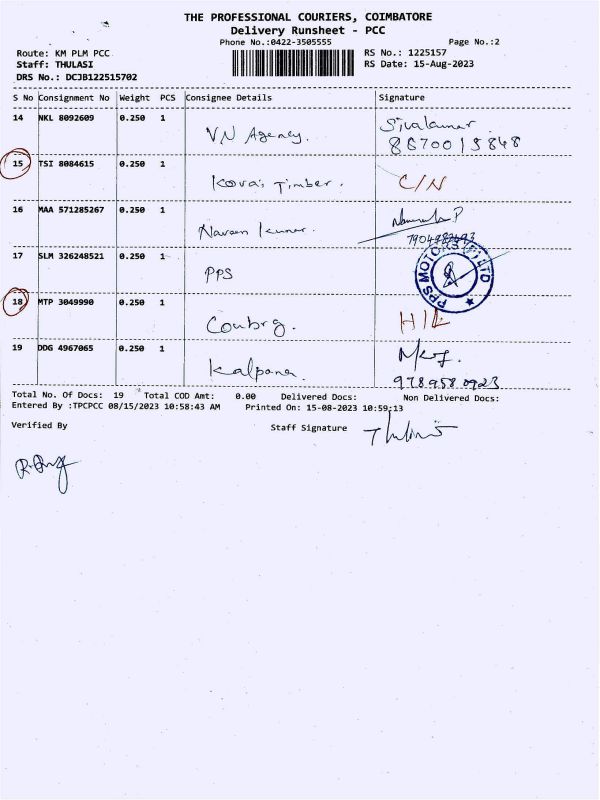 THE PROFESSIONAL COURIERS, COIMBATORE
Delivery Runsheet - PCC
Phone No.:0422-3505555 Page No.:2
Route: KM PLM PCC RS No.: 1225157
Staff: THULASI RS Date: 15-Aug-2023
DRS No.: DCJB122515702
S No Consignment No Weight PCS Consignee Details Signature
14 NKL 8092609 0.250 1 VN Agency. Sivakumar
8670015848
15 TSI 8084615 0.250 1 Kovai Timber. C/N
16 MAA 571285267 0.250 1 Naveen kumar.
17 SLM 326248521 0.250 1 PPS PPS MOTORS (P) LTD
18 MTP 3049990 0.250 1
19 DDG 4967065 0.250 1 Kalpana.
9789580923
Total No. Of Docs: 19 Total COD Amt: 0.00 Delivered Docs: Non Delivered Docs:
Entered By :TPCPCC 08/15/2023 10:58:43 AM Printed On: 15-08-2023 10:59:13
Verified By Staff Signature